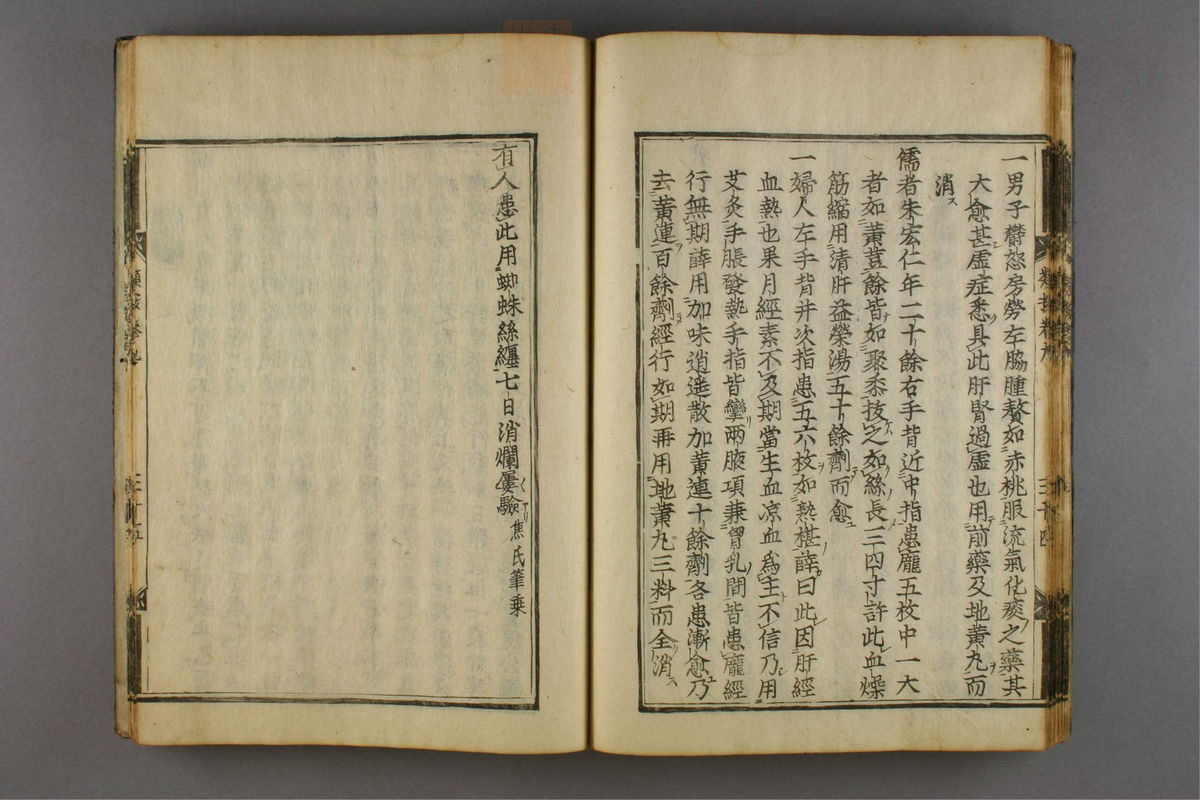 一男子鬱怒房勞左脇腫贅如赤桃服流氣化痰之藥其
大愈甚虛症悉具此肝腎過虛也用前藥及地黄丸而
消ス
儒者朱宏仁年二十餘右手背近中指患疣五枚中一大
者如黄荳餘皆如聚黍拔之如絲長三四寸許此血燥
筋縮用清肝益榮湯五十餘劑而愈
一婦人左手背并次指患五六枚如熟椹薛曰此因肝經
血熱也果月經素不及期當生血凉血爲主不信乃用
艾灸手脹發熱手指皆攣兩腋項兼胷乳間皆患疣經
行無期薛用加味逍遥散加黄連十餘劑各患漸愈乃
去黄連百餘劑經行如期再用地黄丸三料而全消ス
類抜卷九
三十四
有人患此用蜘蛛絲纏七日消爛屢驗焦氏筆乗